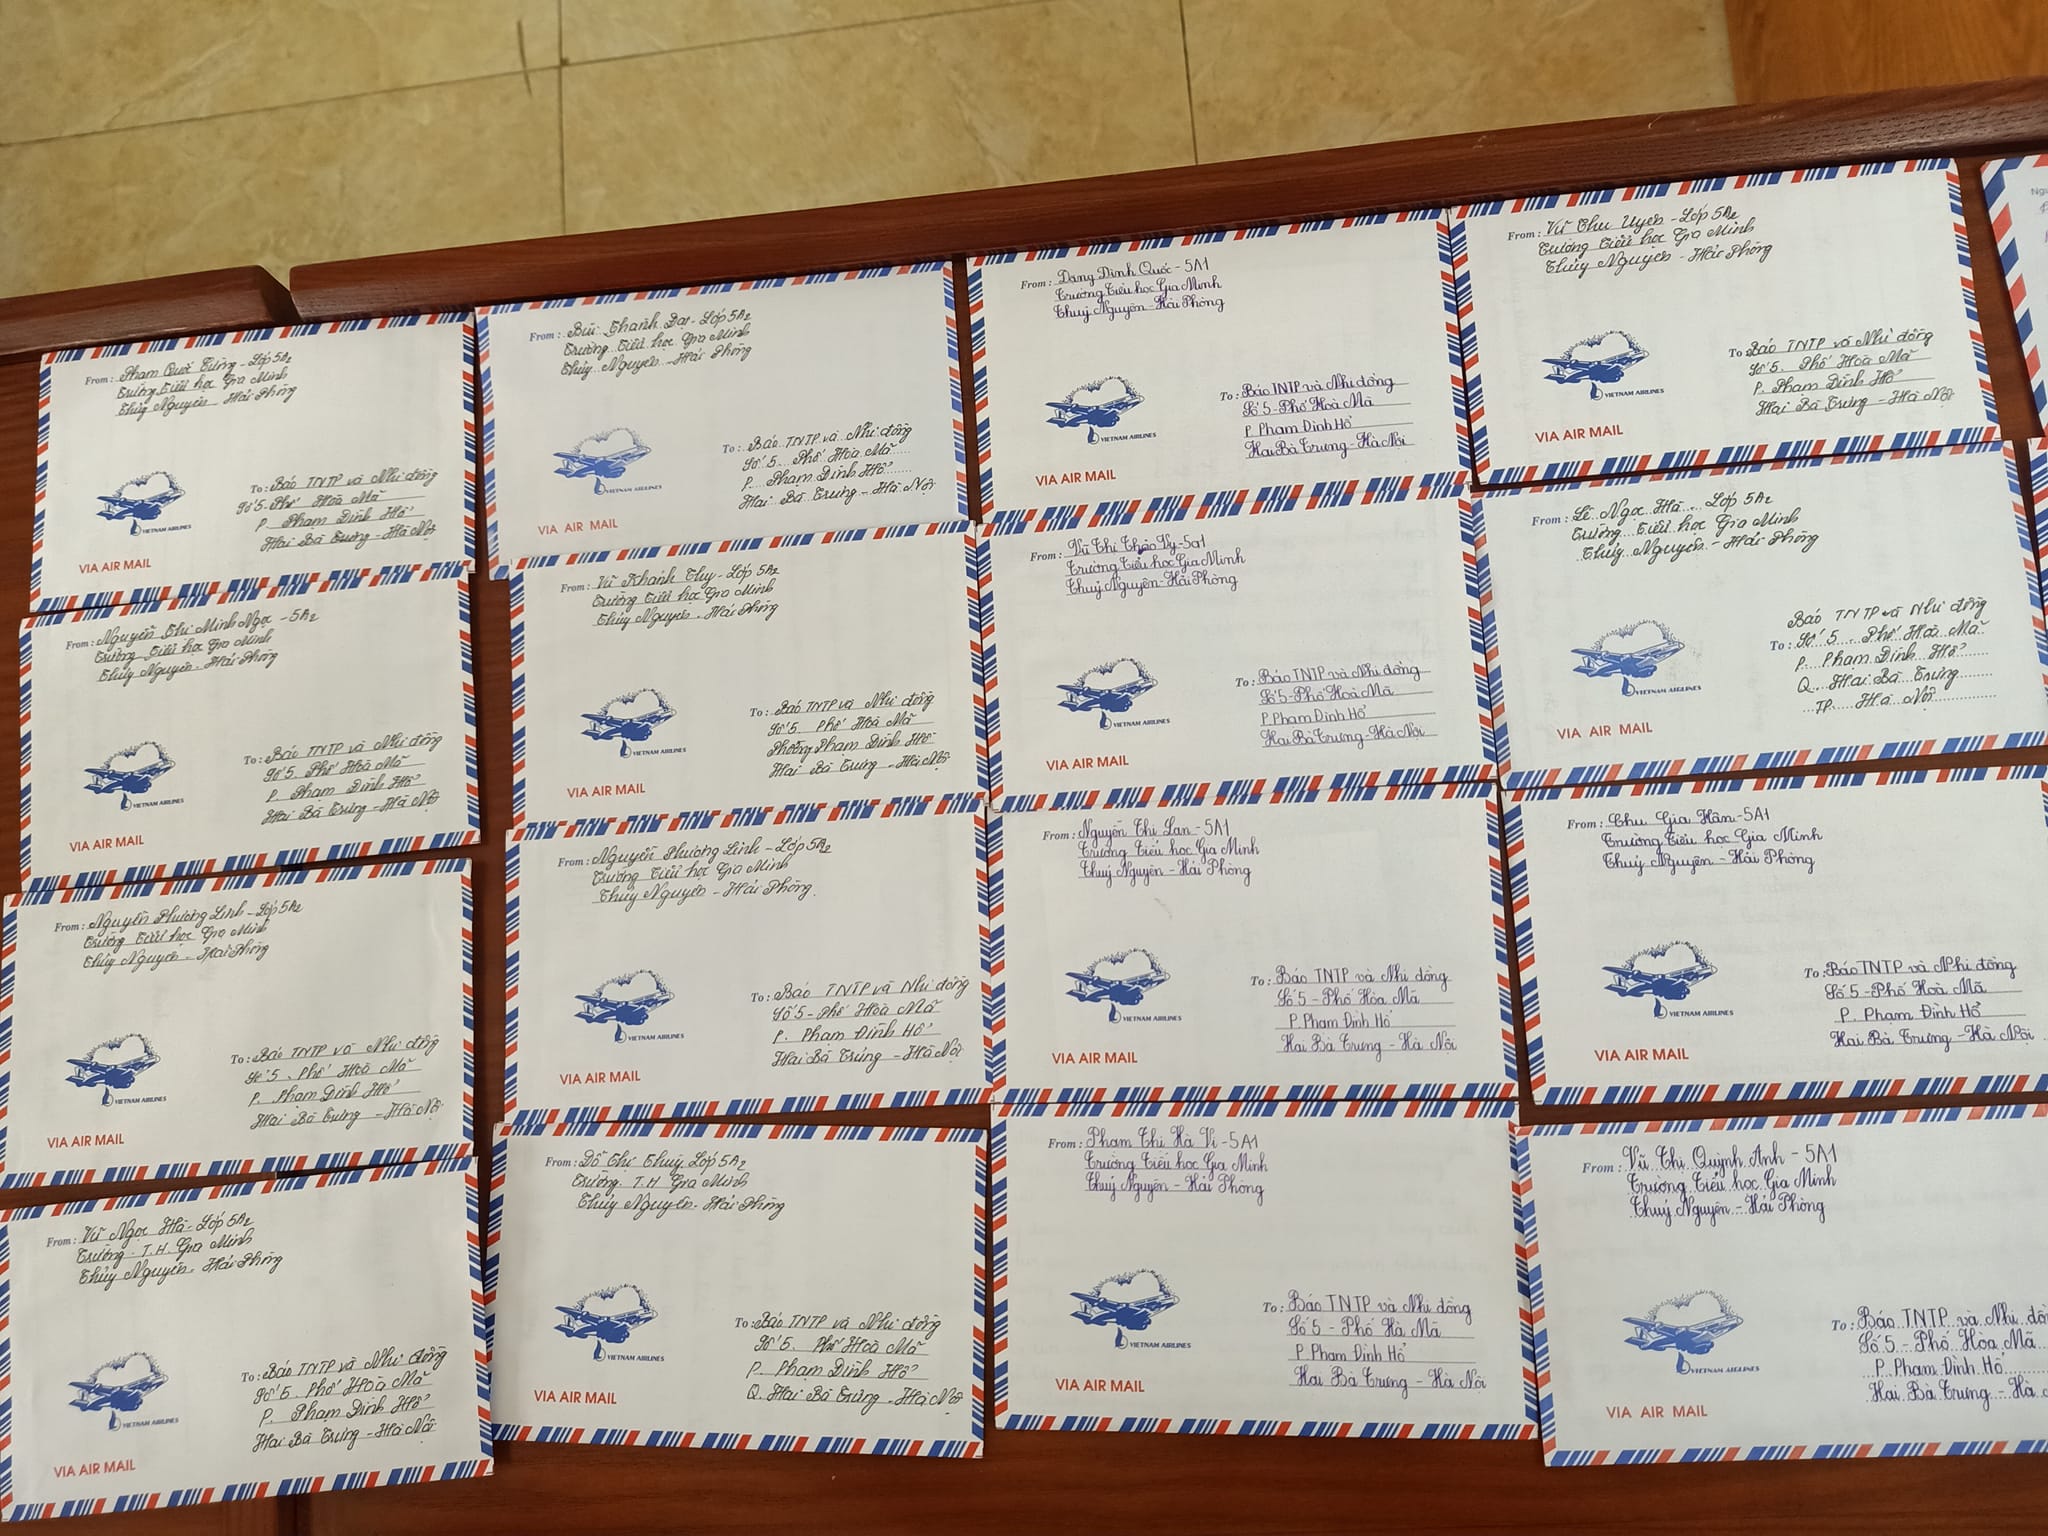 From: Phạm Quốc Tùng - Lớp 5A2
Trường Tiểu học Gia Minh
Thủy Nguyên - Hải Phòng
VIETNAM AIRLINES
To: Báo TNTP và Nhi đồng
Số 5 - Phố Hoà Mã
P. Phạm Đình Hổ
Hai Bà Trưng - Hà Nội
VIA AIR MAIL
From: Bùi Thành Đạt - Lớp 5A2
Trường Tiểu học Gia Minh
Thủy Nguyên - Hải Phòng
VIETNAM AIRLINES
To: Báo TNTP và Nhi đồng
Số 5. Phố Hoà Mã
P. Phạm Đình Hổ
Hai Bà Trưng - Hà Nội
VIA AIR MAIL
From: Đặng Đình Quốc - 5A1
Trường Tiểu học Gia Minh
Thuỷ Nguyên - Hải Phòng
VIETNAM AIRLINES
To: Báo TNTP và Nhi đồng
Số 5 - Phố Hoà Mã
P Phạm Đình Hổ
Hai Bà Trưng - Hà Nội
VIA AIR MAIL
From: Vũ Thu Uyên - Lớp 5A2
Trường Tiểu học Gia Minh
Thủy Nguyên - Hải Phòng
VIETNAM AIRLINES
To: Báo TNTP và Nhi đồng
Số 5. Phố Hoà Mã
P. Phạm Đình Hổ
Hai Bà Trưng - Hà Nội
VIA AIR MAIL
From: Nguyễn Thị Minh Ngọc - 5A2
Trường Tiểu học Gia Minh
Thủy Nguyên - Hải Phòng
VIETNAM AIRLINES
To: Báo TNTP và Nhi đồng
Số 5. Phố Hoà Mã
P. Phạm Đình Hổ
Hai Bà Trưng - Hà Nội
VIA AIR MAIL
From: Vũ Khánh Thy - Lớp 5A2
Trường Tiểu học Gia Minh
Thủy Nguyên - Hải Phòng
VIETNAM AIRLINES
To: Báo TNTP và Nhi đồng
Số 5. Phố Hoà Mã
Phường Phạm Đình Hổ
Hai Bà Trưng - Hà Nội
VIA AIR MAIL
From: Vũ Thị Thảo Vy - 5a1
Trường Tiểu học Gia Minh
Thuỷ Nguyên - Hải Phòng
VIETNAM AIRLINES
To: Báo TNTP và Nhi đồng
Số 5 - Phố Hoà Mã
P. Phạm Đình Hổ
Hai Bà Trưng - Hà Nội
VIA AIR MAIL
From: Lê Ngọc Hà - Lớp 5A2
Trường Tiểu học Gia Minh
Thủy Nguyên - Hải Phòng
VIETNAM AIRLINES
Báo TNTP và Nhi đồng
To: Số 5 - Phố Hoà Mã
P. Phạm Đình Hổ
Q. Hai Bà Trưng
TP. Hà Nội
VIA AIR MAIL
From: Nguyễn Phương Linh - Lớp 5A2
Trường Tiểu học Gia Minh
Thủy Nguyên - Hải Phòng
VIETNAM AIRLINES
To: Báo TNTP và Nhi đồng
Số 5 - Phố Hoà Mã
P. Phạm Đình Hổ
Hai Bà Trưng - Hà Nội
VIA AIR MAIL
From: Nguyễn Phương Linh - Lớp 5A2
Trường Tiểu học Gia Minh
Thủy Nguyên - Hải Phòng.
VIETNAM AIRLINES
To: Báo TNTP và Nhi đồng
Số 5 - Phố Hoà Mã
P. Phạm Đình Hổ
Hai Bà Trưng - Hà Nội
VIA AIR MAIL
From: Nguyễn Thị Lan - 5A1
Trường Tiểu học Gia Minh
Thuỷ Nguyên - Hải Phòng
VIETNAM AIRLINES
To: Báo TNTP và Nhi đồng
Số 5 - Phố Hòa Mã
P. Phạm Đình Hổ
Hai Bà Trưng - Hà Nội
VIA AIR MAIL
From: Chu Gia Hân - 5A1
Trường Tiểu học Gia Minh
Thuỷ Nguyên - Hải Phòng
VIETNAM AIRLINES
To: Báo TNTP và Nhi đồng
Số 5 - Phố Hoà Mã
P. Phạm Đình Hổ
Hai Bà Trưng - Hà Nội
VIA AIR MAIL
From: Vũ Ngọc Hà - Lớp 5A2
Trường T.H. Gia Minh
Thủy Nguyên - Hải Phòng
VIETNAM AIRLINES
To: Báo TNTP và Nhi đồng
Số 5. Phố Hoà Mã
P. Phạm Đình Hổ
Hai Bà Trưng - Hà Nội
VIA AIR MAIL
From: Đỗ Thị Thúy. Lớp 5A2
Trường. T.H Gia Minh
Thủy Nguyên - Hải Phòng
VIETNAM AIRLINES
To: Báo TNTP và Nhi đồng
Số 5. Phố Hoà Mã
P. Phạm Đình Hổ
Q. Hai Bà Trưng - Hà Nội
VIA AIR MAIL
From: Phạm Thị Hà Vi - 5A1
Trường Tiểu học Gia Minh
Thuỷ Nguyên - Hải Phòng
VIETNAM AIRLINES
To: Báo TNTP và Nhi đồng
Số 5 - Phố Hà Mã
P Phạm Đình Hổ
Hai Bà Trưng - Hà Nội
VIA AIR MAIL
From: Vũ Thị Quỳnh Anh - 5A1
Trường Tiểu học Gia Minh
Thuỷ Nguyên - Hải Phòng
VIETNAM AIRLINES
To: Báo TNTP và Nhi
Số 5 - Phố Hòa Mã
P. Phạm Đình Hổ
Hai Bà Trưng - Hà
VIA AIR MAIL